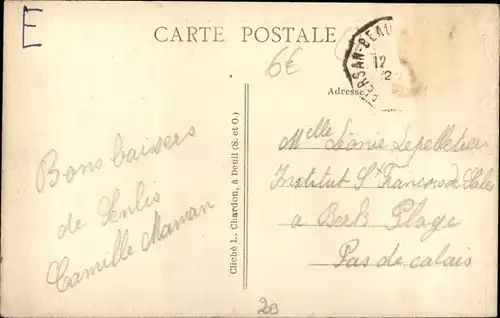 E
CARTE POSTALE
6€
PERSAN-BEAU
12
Adresse
Bons baisers
de Senlis
Camille Maman
Cliché L. Chardon, à Deuil (S. et O.)
Melle Léonie Lepelletier
Institut St François de Sales
à Berk Plage
Pas de calais